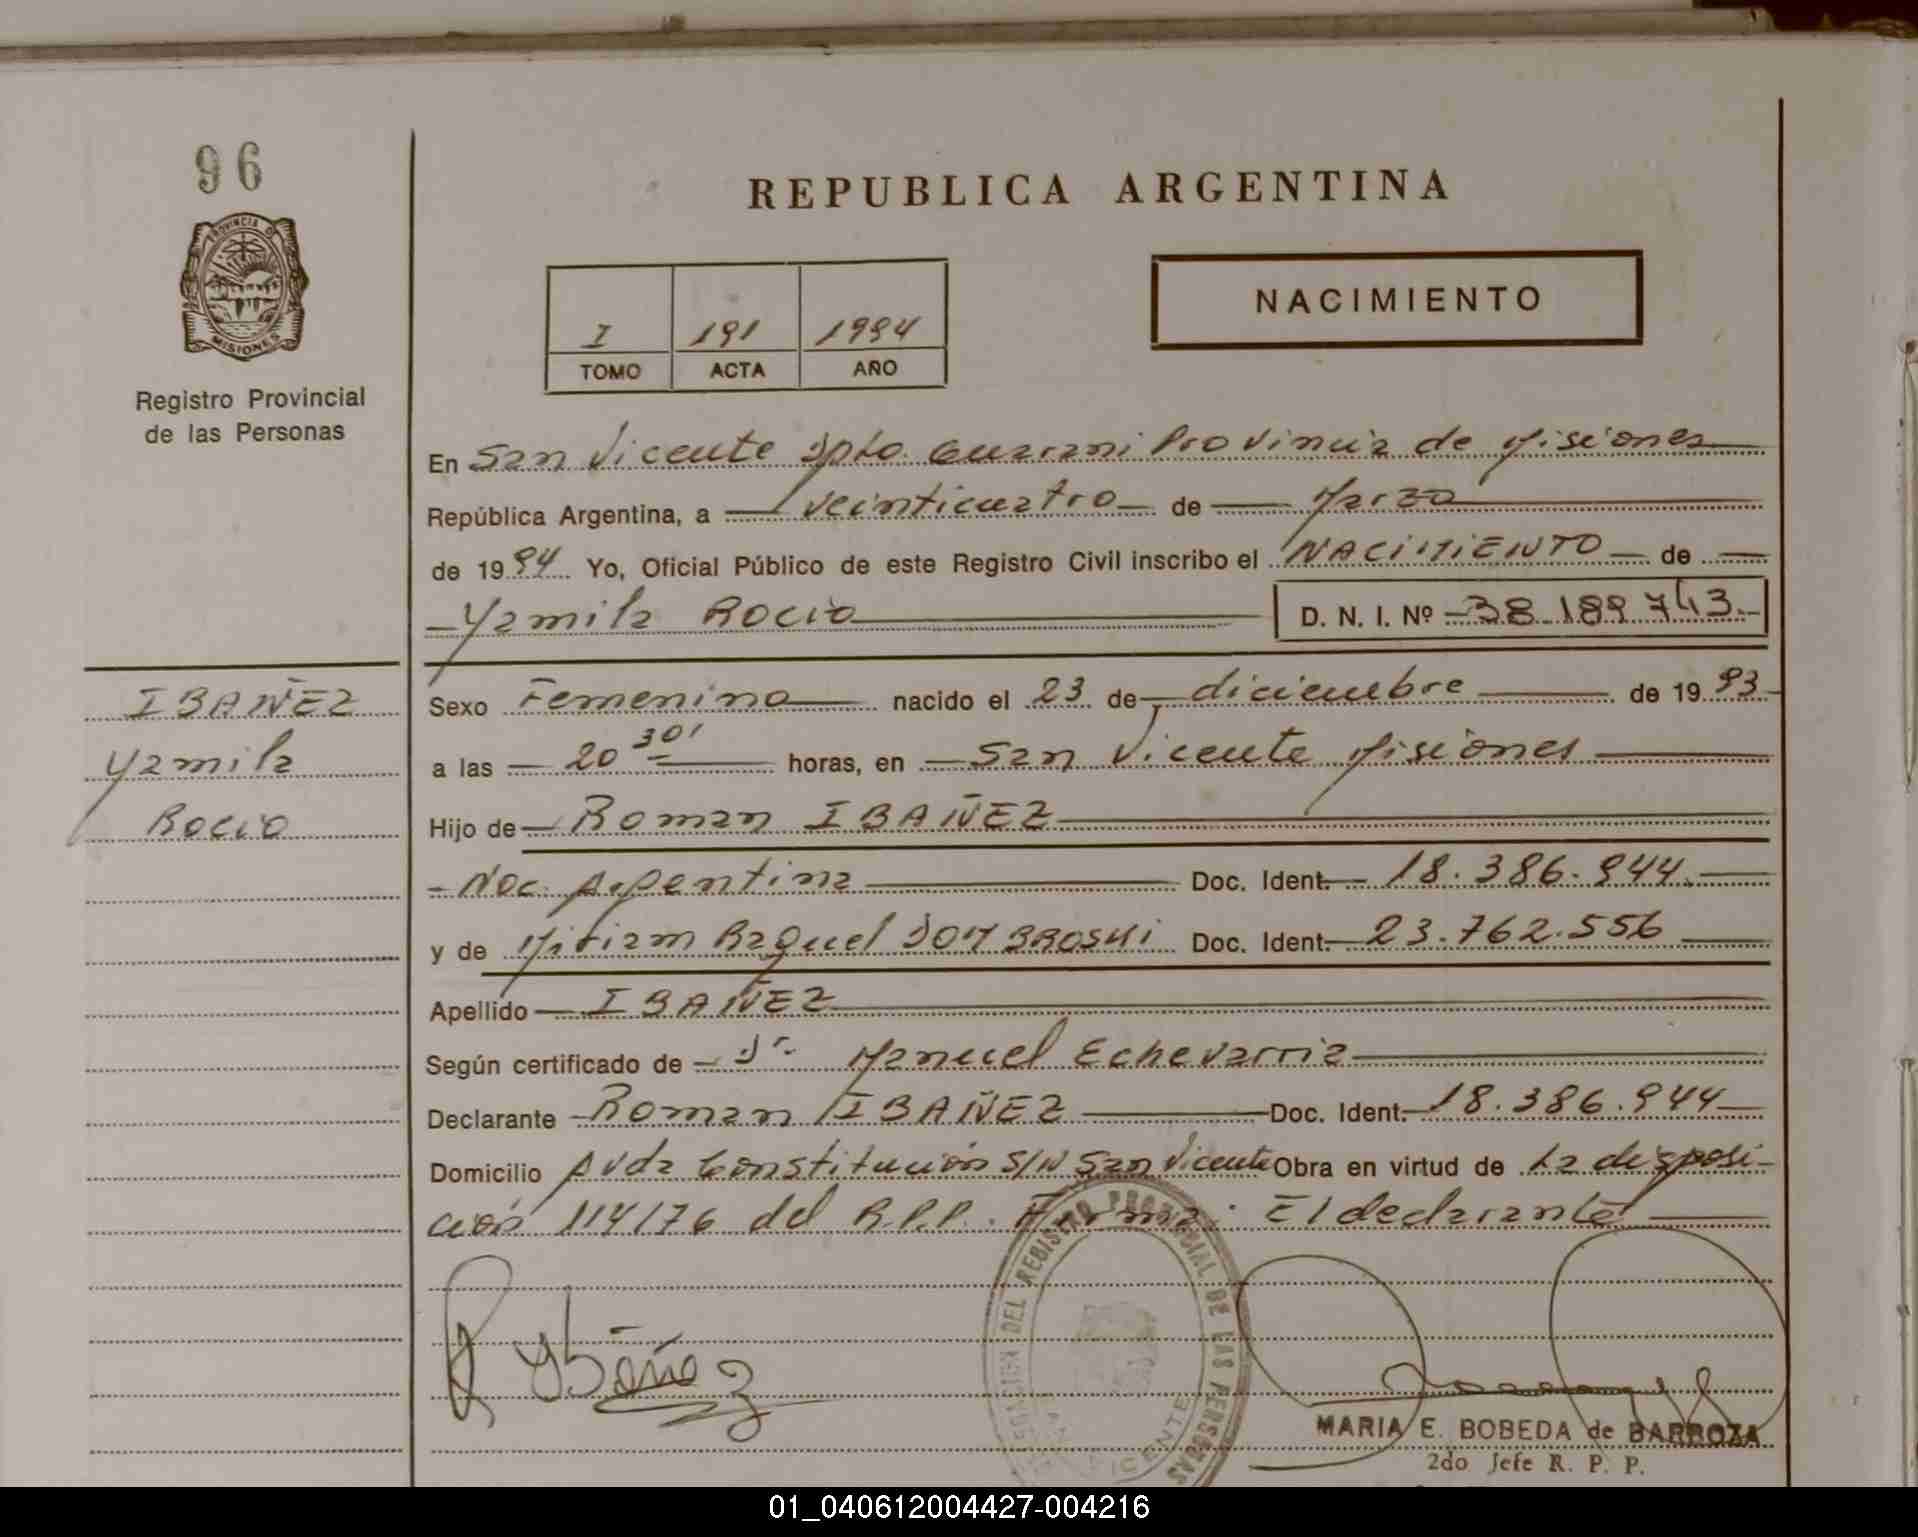 96
PROVINCIA DE
MISIONES
Registro Provincial
de las Personas
REPUBLICA ARGENTINA
I 191 1994
TOMO ACTA AÑO
NACIMIENTO
En San Vicente Dpto. Guarani Provincia de Misiones
República Argentina, a veinticuatro de Marzo
de 1994 Yo, Oficial Público de este Registro Civil inscribo el NACIMIENTO de
Yamila Rocio D. N. I. Nº 38.189.743.
IBAÑEZ
Yamila
Rocio
Sexo Femenino nacido el 23 de diciembre de 1993
a las 20 30' horas, en San Vicente Misiones
Hijo de Roman IBAÑEZ
Nac. Argentina Doc. Ident. 18.386.944
y de Miriam Raquel DOMBROSKI Doc. Ident. 23.762.556
Apellido IBAÑEZ
Según certificado de Dr. Manuel Echevarria
Declarante Roman IBAÑEZ Doc. Ident. 18.386.944
Domicilio Avda Constitución S/N San Vicente Obra en virtud de La disposi-
ción 114/76 del R.P.P. Firma: El declarante
DELEGACION DEL REGISTRO PROVINCIAL DE LAS PERSONAS
SAN VICENTE
R Ybáñez
MARIA E. BOBEDA de BARROZA
2do Jefe R. P. P.
01_040612004427-004216